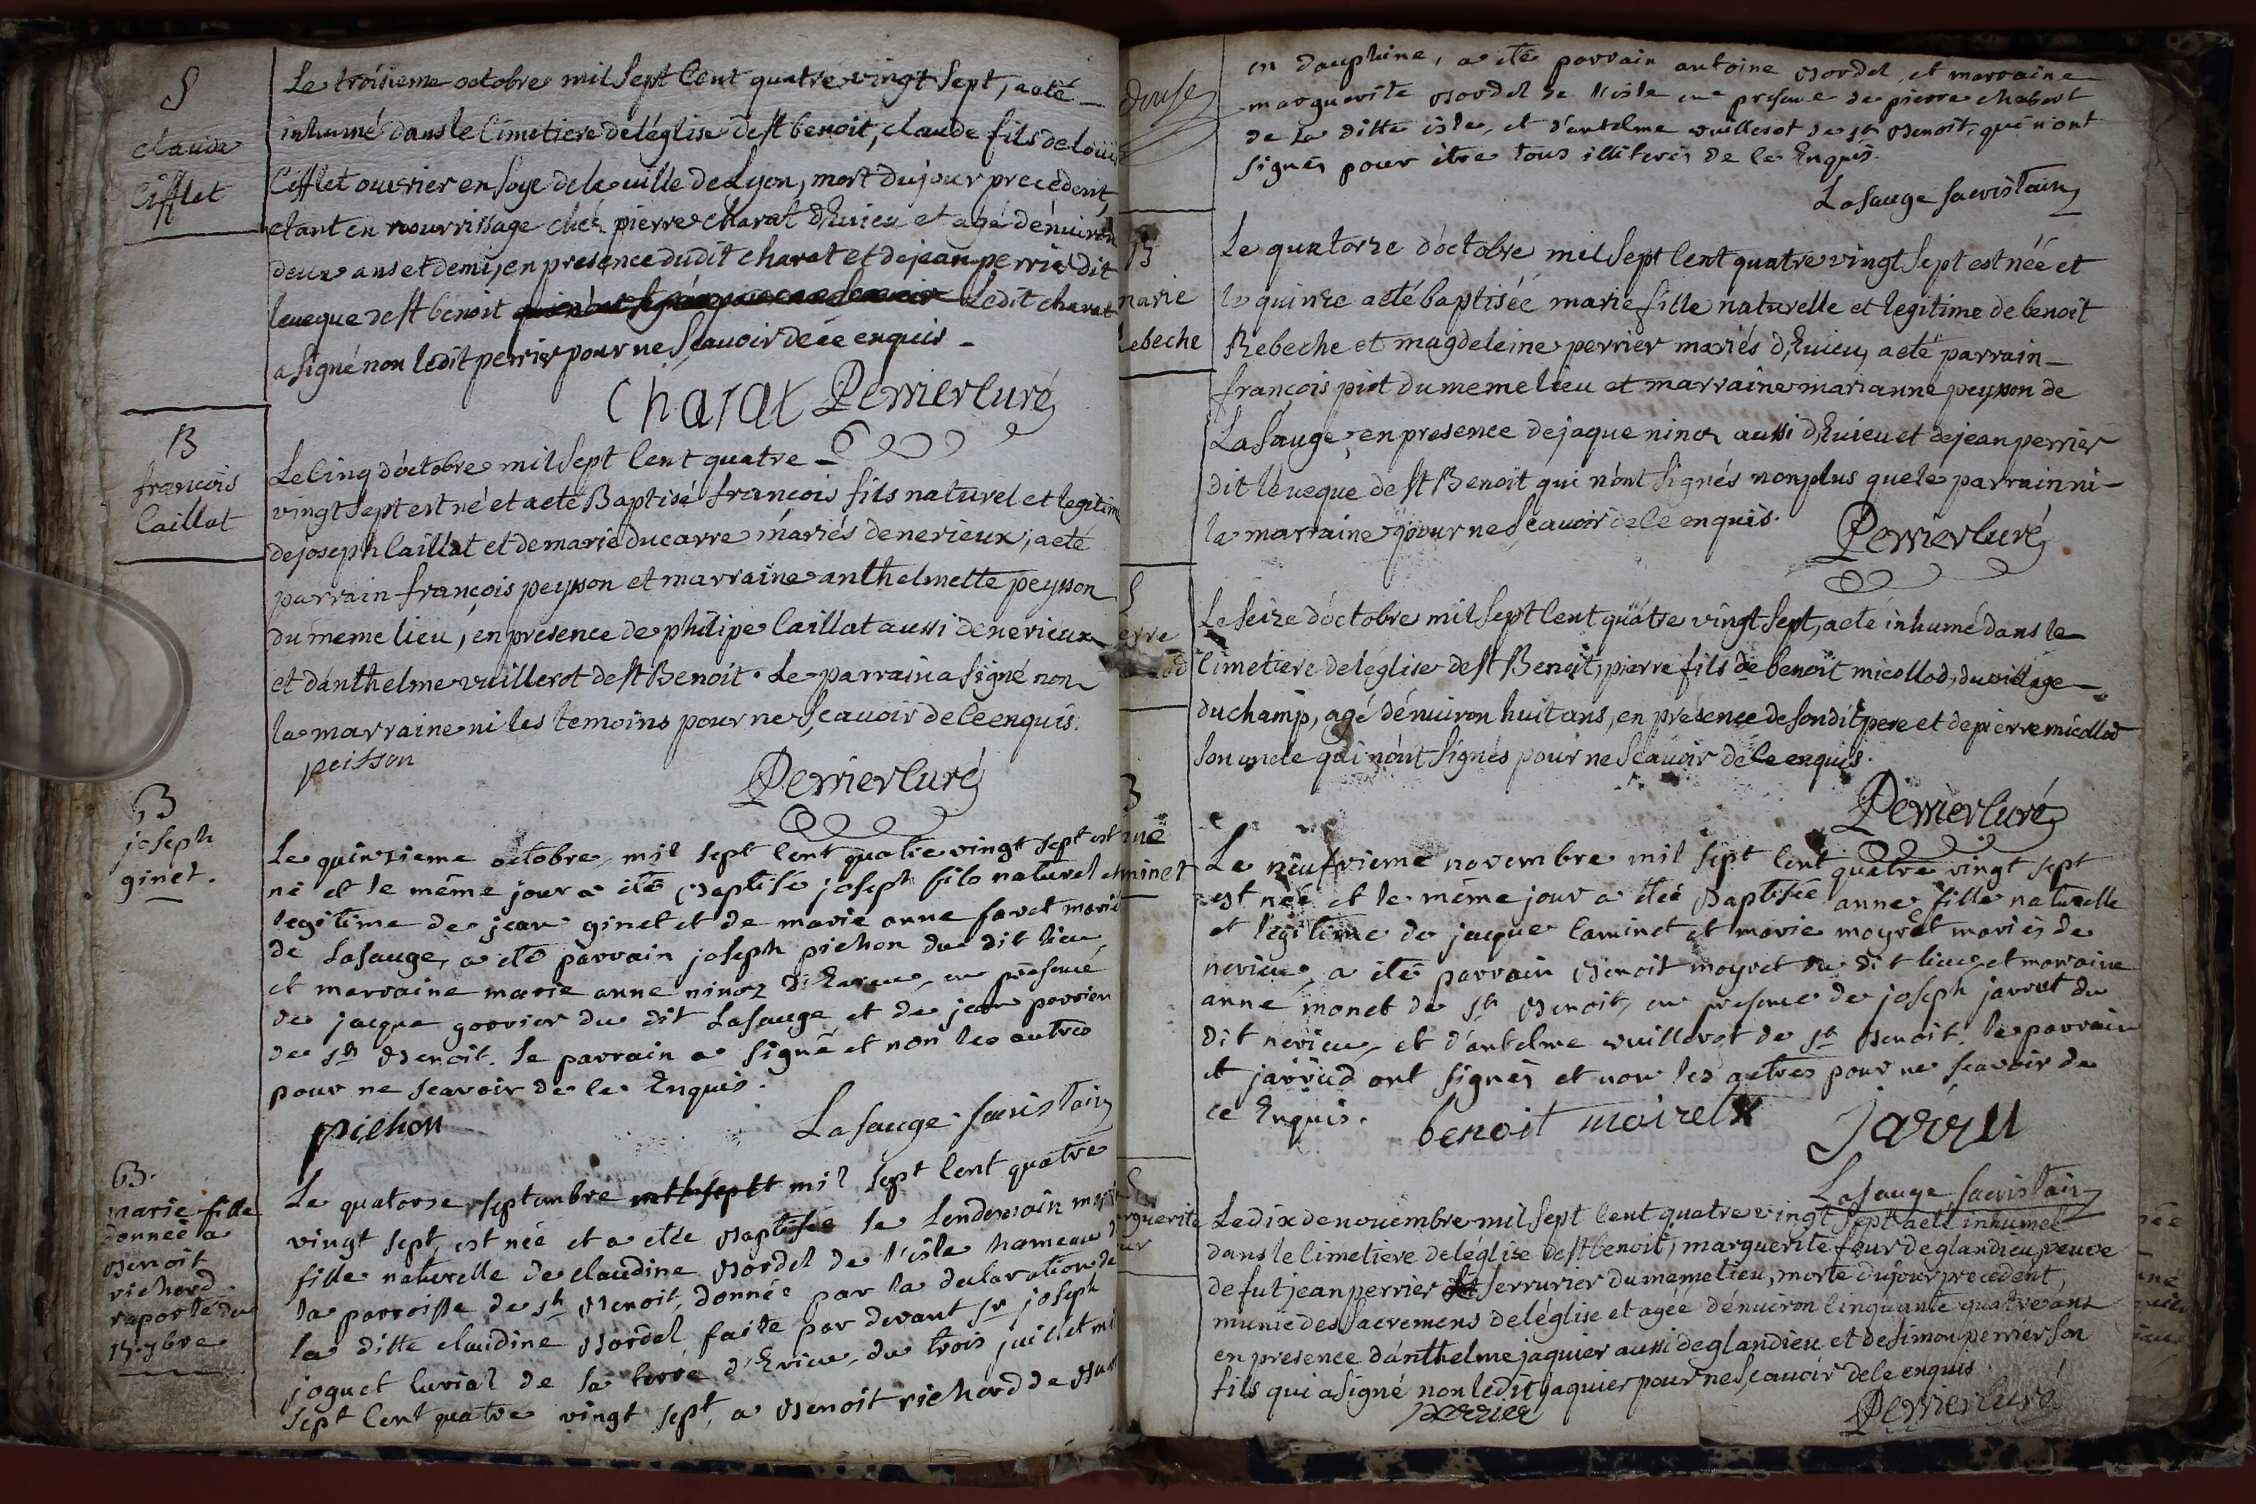 S
claude
Cifflet
Le troisieme octobre mil sept cent quatre vingt sept, a eté
inhumé dans le cimetiere de léglise de st benoit, claude fils de loui
Cifflet ouvrier en soye de la ville de Lyon, mort du jour precedent,
etant en nourrissage chés pierre charat d'Evieu et agé d'enuiron
deux ans et demi, en presence dudit charat et de jean perrier dit
leveque de st benoit Ledit charat
a signé non ledit perrier pour ne sçavoir de ce enquis
Charat Perrier curé
B
francois
Caillat
Le cinq d'octobre mil sept cent quatre
vingt sept est né et a eté Baptisé francois fils naturel et legitim
de joseph Caillat et de marie ducarre mariés de nerieux; a eté
parrain françois peysson et marraine anthelmette peysson
du meme lieu, en presence de philipe Caillat aussi de nerieux
et d'anthelme vuillerot de st Benoit. Le parrain a signé non
la marraine ni les temoins pour ne sçavoir de ce enquis.
peisson
Perrier curé
B
joseph
ginet.
Le quinzieme octobre mil sept cent quatre vingt sept est
né et le même jour a été Baptisé joseph fils naturel et
legitime de jean ginet et de marie anne favet marié
de Lasauge, a eté parrain joseph pichon du dit lieu
et marraine marie anne ninoz d'Evieu, en présence
de jacque gorrier du dit Lasauge et de jean perrier
de st Benoit. le parrain a signé et non les autres
pour ne scavoir de ce Enquis.
pichon
Lasauge sacristain
B.
marie fille
donnée a
Benoit
richard
raporté du
15. 7bre
Le quatorze septembre mil sept cent quatre
vingt sept, est née et a etée Baptisée le Lendemain marie
fille naturelle de claudine Bordel de l'isle hameau d
la parroisse de st Benoit, donnée par la declaration de
la ditte claudine Bordel faite par devant sr joseph
joguet curial de la terre d'Evieu, du trois juillet mi
sept cent quatre vingt sept, a Benoit richard de
douse
en dauphine, a eté parrain antoine Bordel, et marraine
marguerite Bordel de l'isle en presence de pierre chabert
de La ditte isle, et d'antelme vuillerot de st Benoit, qui n'ont
signés pour être tous illiterés de ce Enquis.
Lasauge sacristain
B
marie
Rebeche
Le quatorze d'octobre mil sept cent quatre vingt sept est née et
le quinze a eté baptisée marie fille naturelle et legitime de benoit
Rebeche et magdeleine perrier mariés d'Evieu, a eté parrain
françois piot du meme lieu et marraine marianne peysson de
La Sauge, en presence de jaque ninoz aussi d'Evieu et de jean perrier
dit leveque de st Benoit qui n'ont signés non plus que le parrain ni
la marraine pour ne sçavoir de ce enquis.
Perrier curé
S
erre
od
Le seize d'octobre mil sept cent quatre vingt sept, a eté inhumé dans le
cimetiere de léglise de st Benoit, pierre fils de benoit micollod, du village
du champ, agé d'enuiron huit ans, en presence de son dit pere et de pierre micollod
son oncle qui n'ont signés pour ne scavoir de ce enquis.
Perrier curé
B
nne
minet
Le neufvieme novembre mil sept cent quatre vingt sept
est née et le même jour a étée Baptisée anne fille naturelle
et legitime de jacque caminet et marie moyret mariés de
nerieu, a été parrain Benoit moyret du dit lieu, et marraine
anne monet de st Benoit, en presence de joseph jarrut du
dit nerieu, et d'antelme vuillerot de st Benoit. le parrain
et jarrud ont signés et non les autres pour ne scavoir de
ce Enquis.
benoit moiret
jarru
Lasauge sacristain
S
rguerite
ur
Le dix de novembre mil sept cent quatre vingt sept a eté inhumée
dans le cimetiere de léglise de st benoit, marguerite four de glandieu veuve
de fut jean perrier serrurier du meme lieu, morte du jour precedent,
munie des sacremens de léglise et agée d'enuiron cinquante quatre ans
en presence d'anthelme jaquier aussi de glandieu et de simon perrier son
fils qui a signé non ledit jaquier pour ne sçavoir de ce enquis.
perrier
Perrier curé